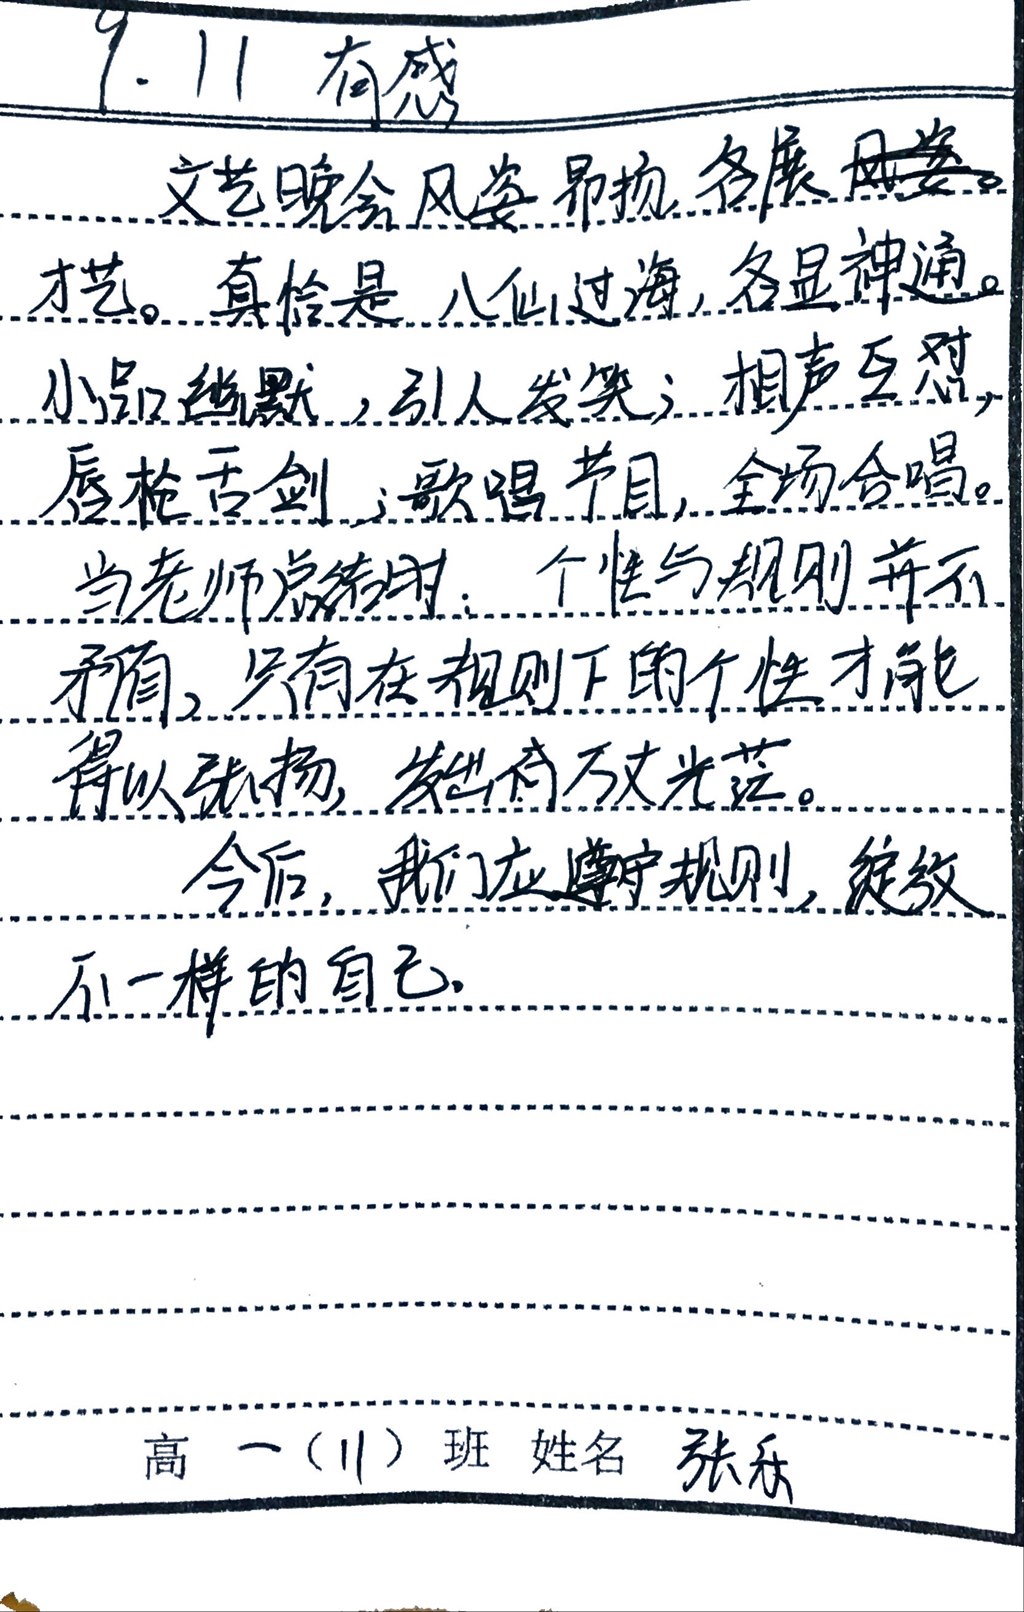 9.11 有感
文艺晚会风姿昂扬,各展
才艺。真恰是八仙过海,各显神通。
小品幽默,引人发笑;相声互怼,
唇枪舌剑;歌唱节目,全场合唱。
当老师总结时:个性与规则并不
矛盾,只有在规则下的个性才能
得以张扬,发出万丈光茫。
今后,我们应遵守规则,绽放
不一样的自己.
高一(11)班 姓名 张乐